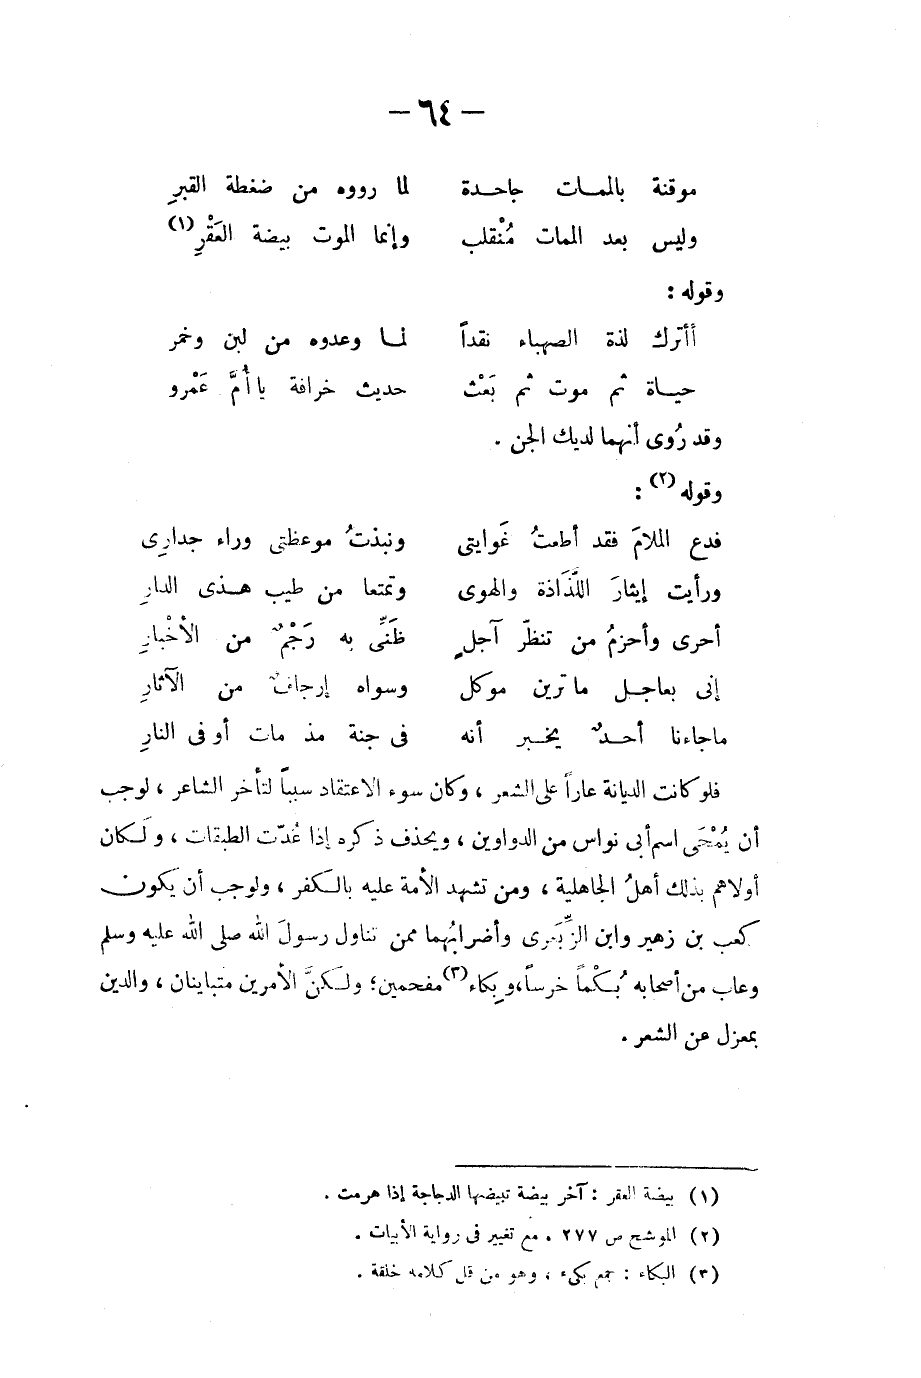 — ٦٤ —
موقنة بالممـات جاحـدة لما رووه من ضغطة القبرِ
وليس بعد الممات مُنْقلب وإنما الموت بيضة العَقْرِ(١)
وقوله :
أأترك لذة الصهباء نقداً لمـا وعدوه من لبن وخمر
حيـاة ثم موت ثم بَعْث حديث خرافة يا أُمَّ عَمْرو
وقد رُوى أنهما لديك الجن .
وقوله(٢) :
فدع الملامَ فقد أطعتُ غَوايتى ونبذتُ موعظتى وراء جدارى
ورأيت إيثارَ اللَّذَاذة والهوى وتمتعا من طيب هـذى الدارِ
أحرى وأحزمُ من تنظّر آجلٍ ظَنِّى به رَجْمٌ من الأخْبارِ
إنى بعاجـل ما ترين موكل وسواه إرجافٌ من الآثارِ
ماجاءنا أحـدٌ يخـبر أنه فى جنة مذ مات أو فى النارِ
فلو كانت الديانة عاراً على الشعر ، وكان سوء الاعتقاد سبباً لتأخر الشاعر ، لوجب
أن يُمْحَى اسم أبى نواس من الدواوين ، ويحذف ذكره إذا عُدّت الطبقات ، ولـكان
أولاهم بذلك أهلُ الجاهلية ، ومن تشهد الأمة عليه بالـكفر ، ولوجب أن يكون
كعب بن زهير وابن الزِّبَعرى وأضرابُهما ممن تناول رسولَ الله صلى الله عليه وسلم
وعاب من أصحابه بُـكْماً خرساً، وبِكاء(٣) مفحمين؛ ولـكنَّ الأمرين متباينان ، والدين
بمعزل عن الشعر .
(١) بيضة العقر : آخر بيضة تبيضها الدجاجة إذا هرمت .
(٢) الموشح ص ٢٧٧ . مع تغيير فى رواية الأبيات .
(٣) البكاء : جمع بكىء ، وهو من قل كلامه خلقة .